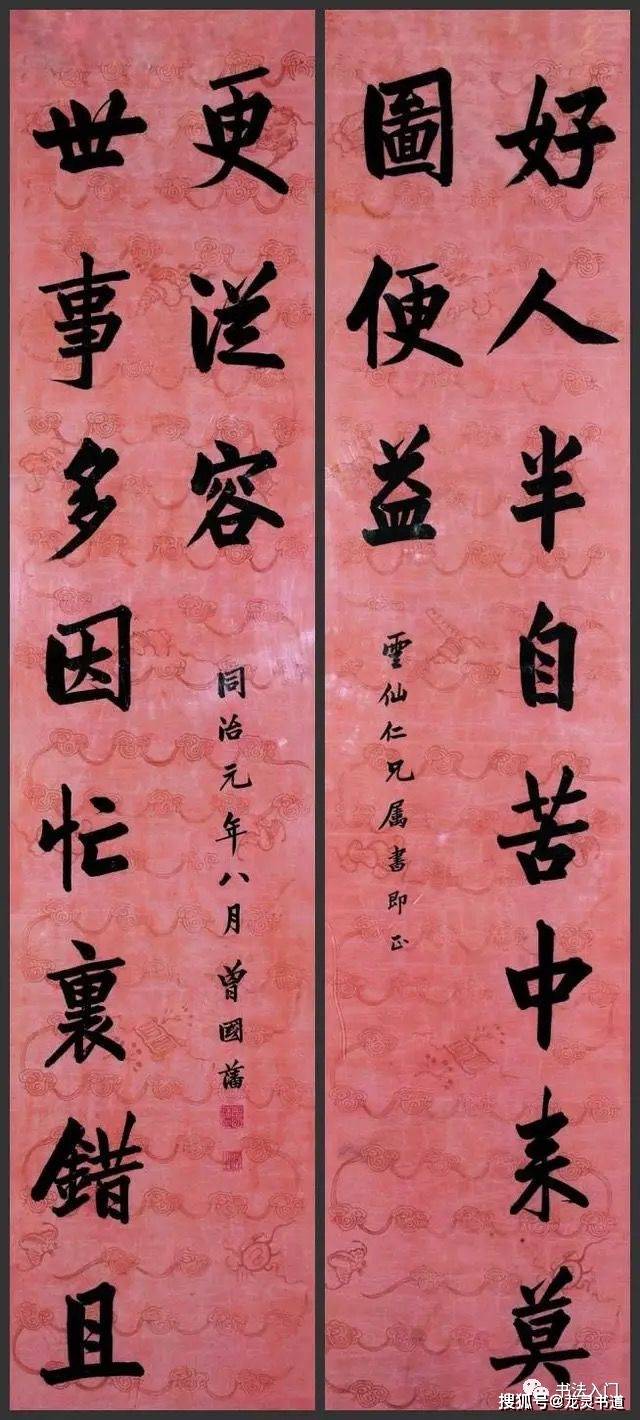 好人半自苦中来莫
圖便益
雲仙仁兄属書即正
世事多因忙裏錯且
更從容
同治元年八月曾國藩
书法入门
搜狐号@龙灵书道